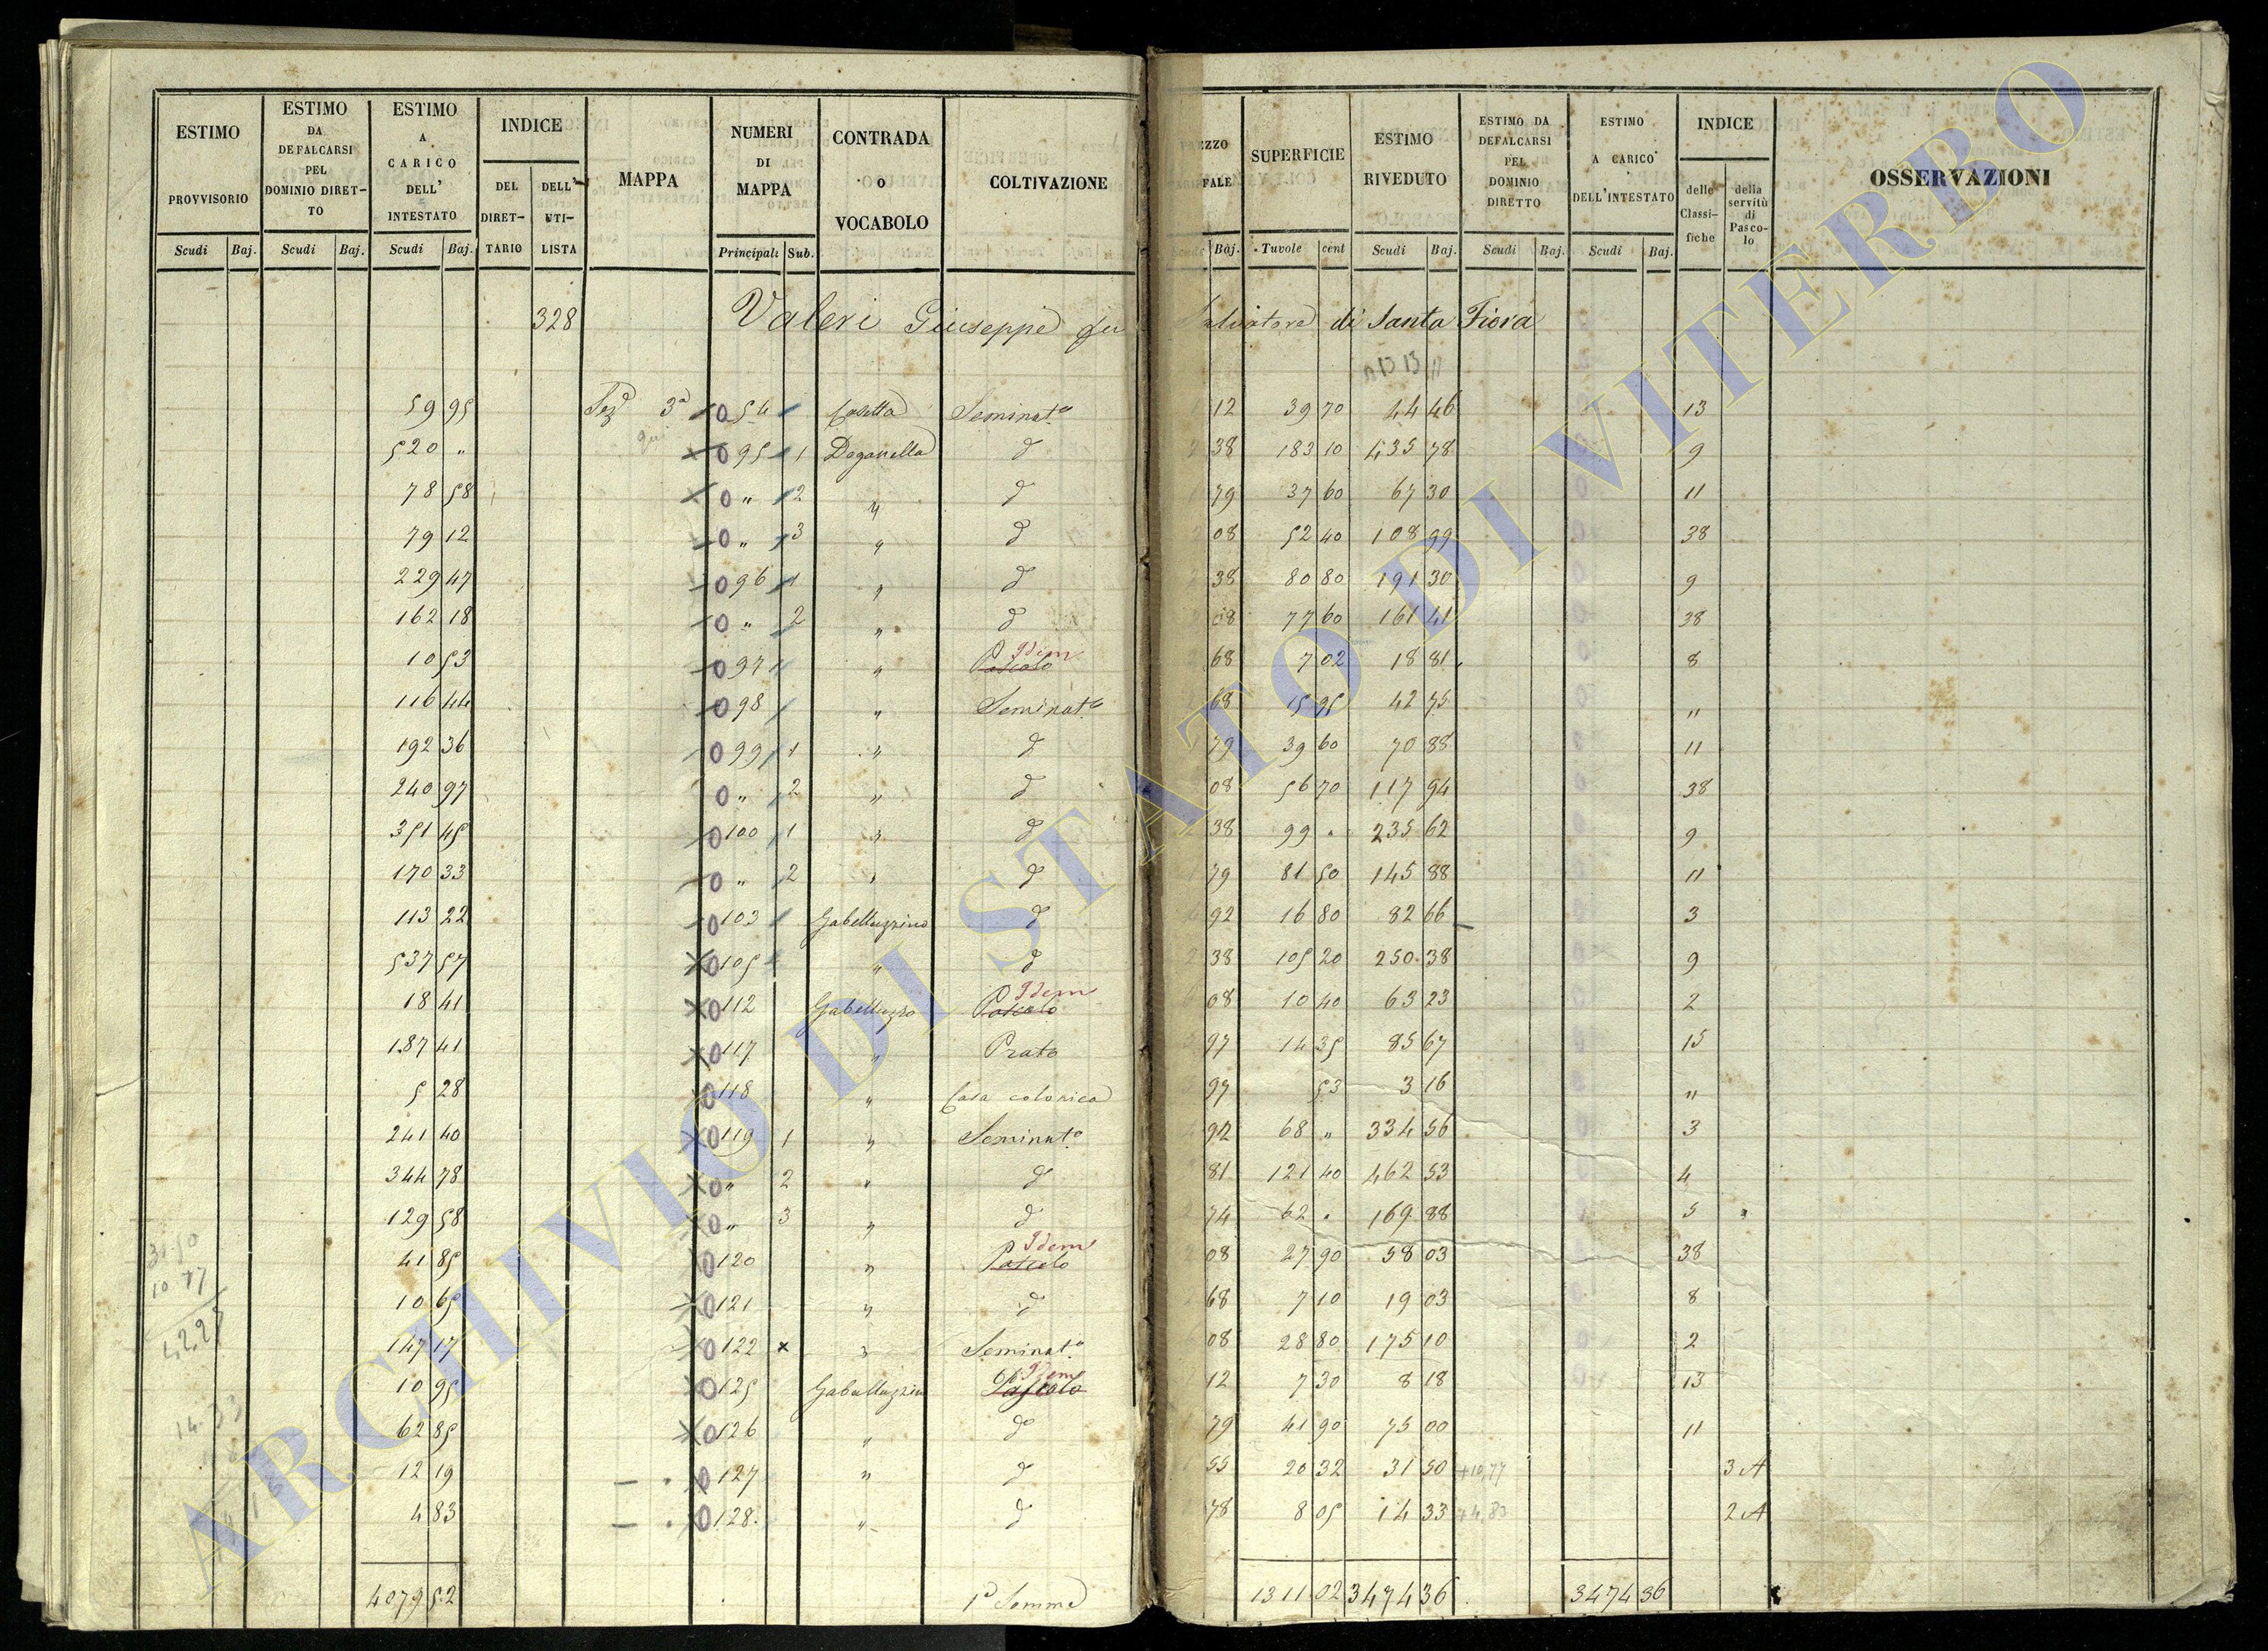 ESTIMO PROVVISORIO Scudi Baj. ESTIMO DA DEFALCARSI PEL DOMINIO DIRET-TO Scudi Baj. ESTIMO A CARICO DELL' INTESTATO Scudi Baj. INDICE DEL DIRET-TARIO DELL' UTI-LISTA MAPPA NUMERI DI MAPPA Principali Sub. CONTRADA O VOCABOLO COLTIVAZIONE FALE Baj. SUPERFICIE Tavole cent ESTIMO RIVEDUTO Scudi Baj. ESTIMO DA DEFALCARSI PEL DOMINIO DIRETTO Scudi Baj. ESTIMO A CARICO DELL'INTESTATO Scudi Baj. INDICE delle Classi-fiche della servitù di Pasco-lo OSSERVAZIONI
328 Valeri Giuseppe fu Salvatore di Santa Fiora
59 95 Sez.e 3a 0 54 Casetta Seminat.o 12 39 70 44 46 13
520 " 0 95 1 Doganella d 38 183 10 435 78 9
78 58 0 " 2 " d 79 37 60 67 30 11
79 12 0 " 3 " d 08 52 40 108 99 38
229 47 0 96 1 " d 38 80 80 191 30 9
162 18 0 " 2 " d 08 77 60 161 41 38
10 53 0 97 " Pascolo Idem 68 7 02 18 81 8
116 44 0 98 " Seminat.o 68 15 95 42 75 "
192 36 0 99 1 " d 79 39 60 70 88 11
240 97 0 " 2 " d 08 56 70 117 94 38
351 45 0 100 1 " d 38 99 " 235 62 9
170 33 0 " 2 " d 79 81 50 145 88 11
113 22 0 103 Gabelluzzino d 92 16 80 82 66 3
537 57 0 105 " d 38 105 20 250 38 9
18 41 0 112 Gabelluzzo Pascolo Idem 08 10 40 63 23 2
187 41 0 117 " Prato 97 14 35 85 67 15
5 28 0 118 " Casa colonica 97 53 3 16 "
241 40 0 119 1 " Seminat.o 92 68 " 334 56 3
344 78 0 " 2 " d 81 121 40 462 53 4
129 58 0 " 3 " d 74 62 " 169 88 5
41 85 0 120 " Pascolo Idem 08 27 90 58 03 38
10 65 0 121 " d 68 7 10 19 03 8
147 17 0 122 x " Seminat.o 08 28 80 175 10 2
10 95 0 125 Gabelluzzin Pascolo Idem 12 7 30 8 18 13
62 85 0 126 " do 79 41 90 75 00 11
12 19 0 127 " d 55 20 32 31 50 +10,77 3 A
4 83 0 128 " d 78 8 05 14 33 +4,83 2 A
4079 52 1a Somma 1311 02 3474 36 3474 36
31 50
10 77
42 27
14 33
ARCHIVIO DI STATO DI VITERBO